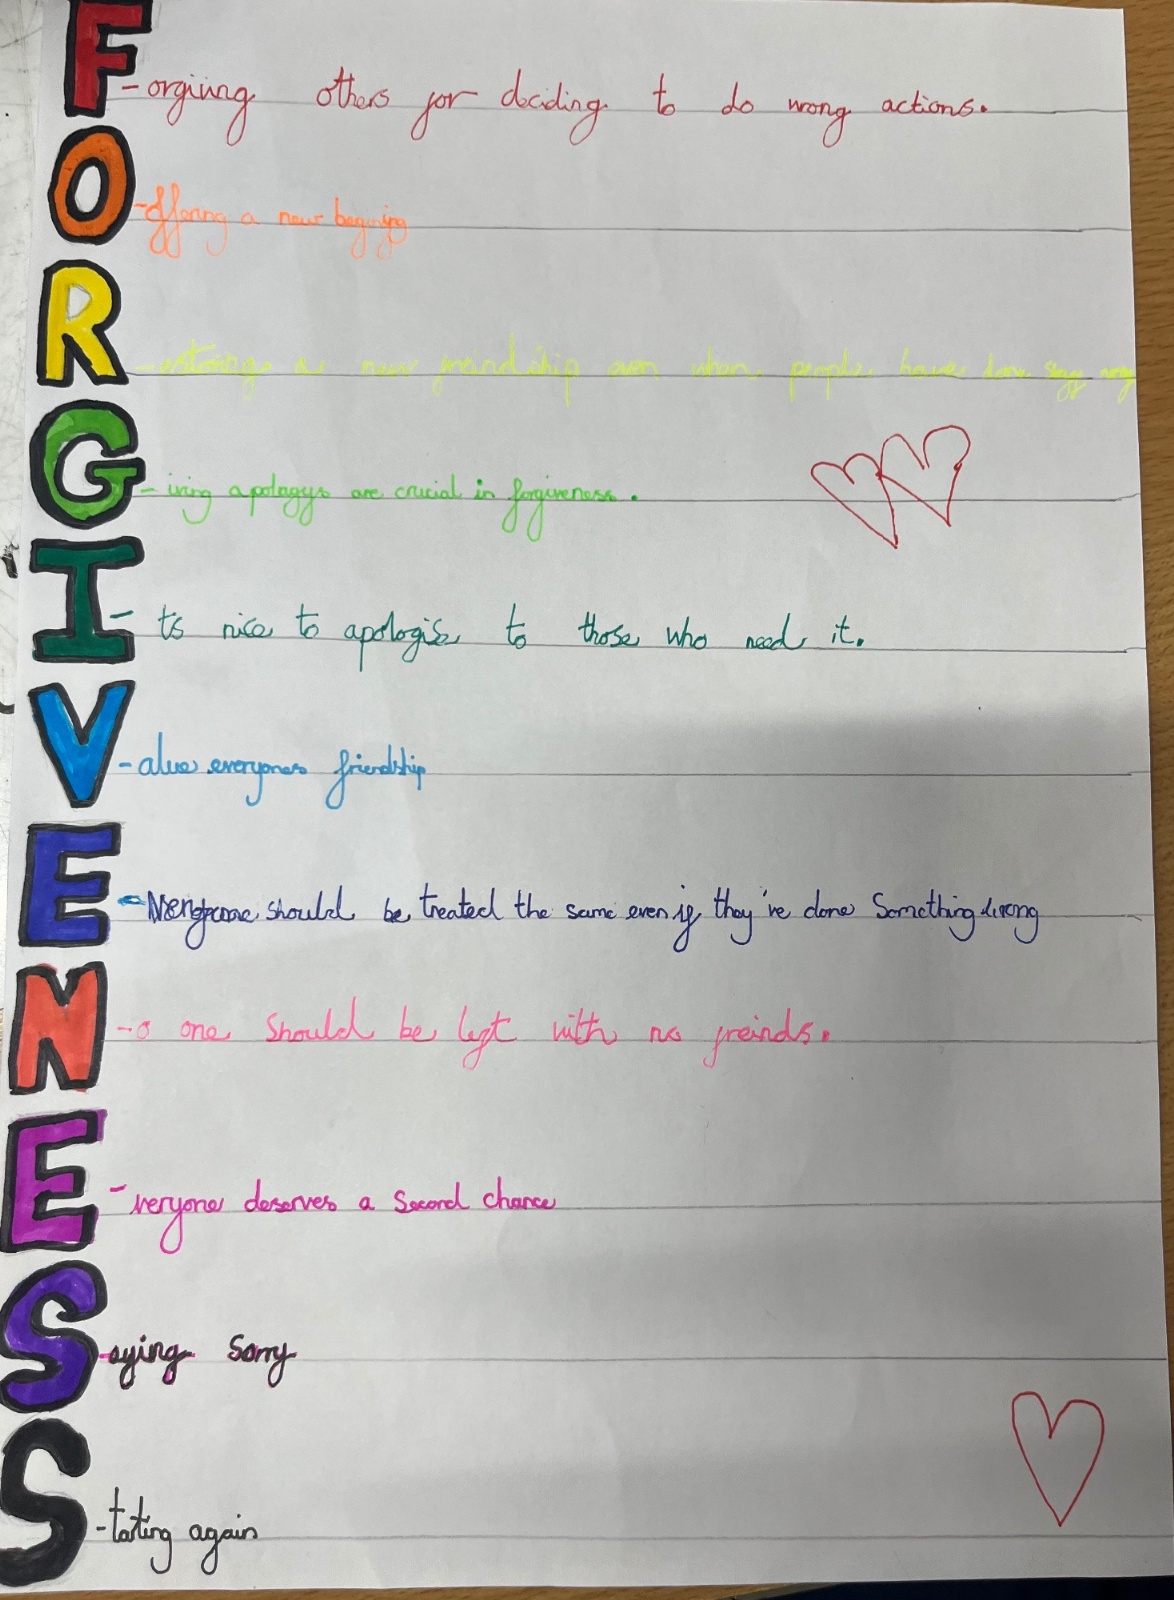 F-orgiving others for deciding to do wrong actions.
O-ffering a new begining
R-estoring a new freindship even when people have done
G-iving apologys are crucial in forgiveness.
I-ts nice to apologise to those who need it.
V-alue everyones friendship
E- should be treated the same even if they've done something wrong
N-o one should be left with no freinds.
E-veryone deserves a second chance
S-aying sorry
S-tarting again